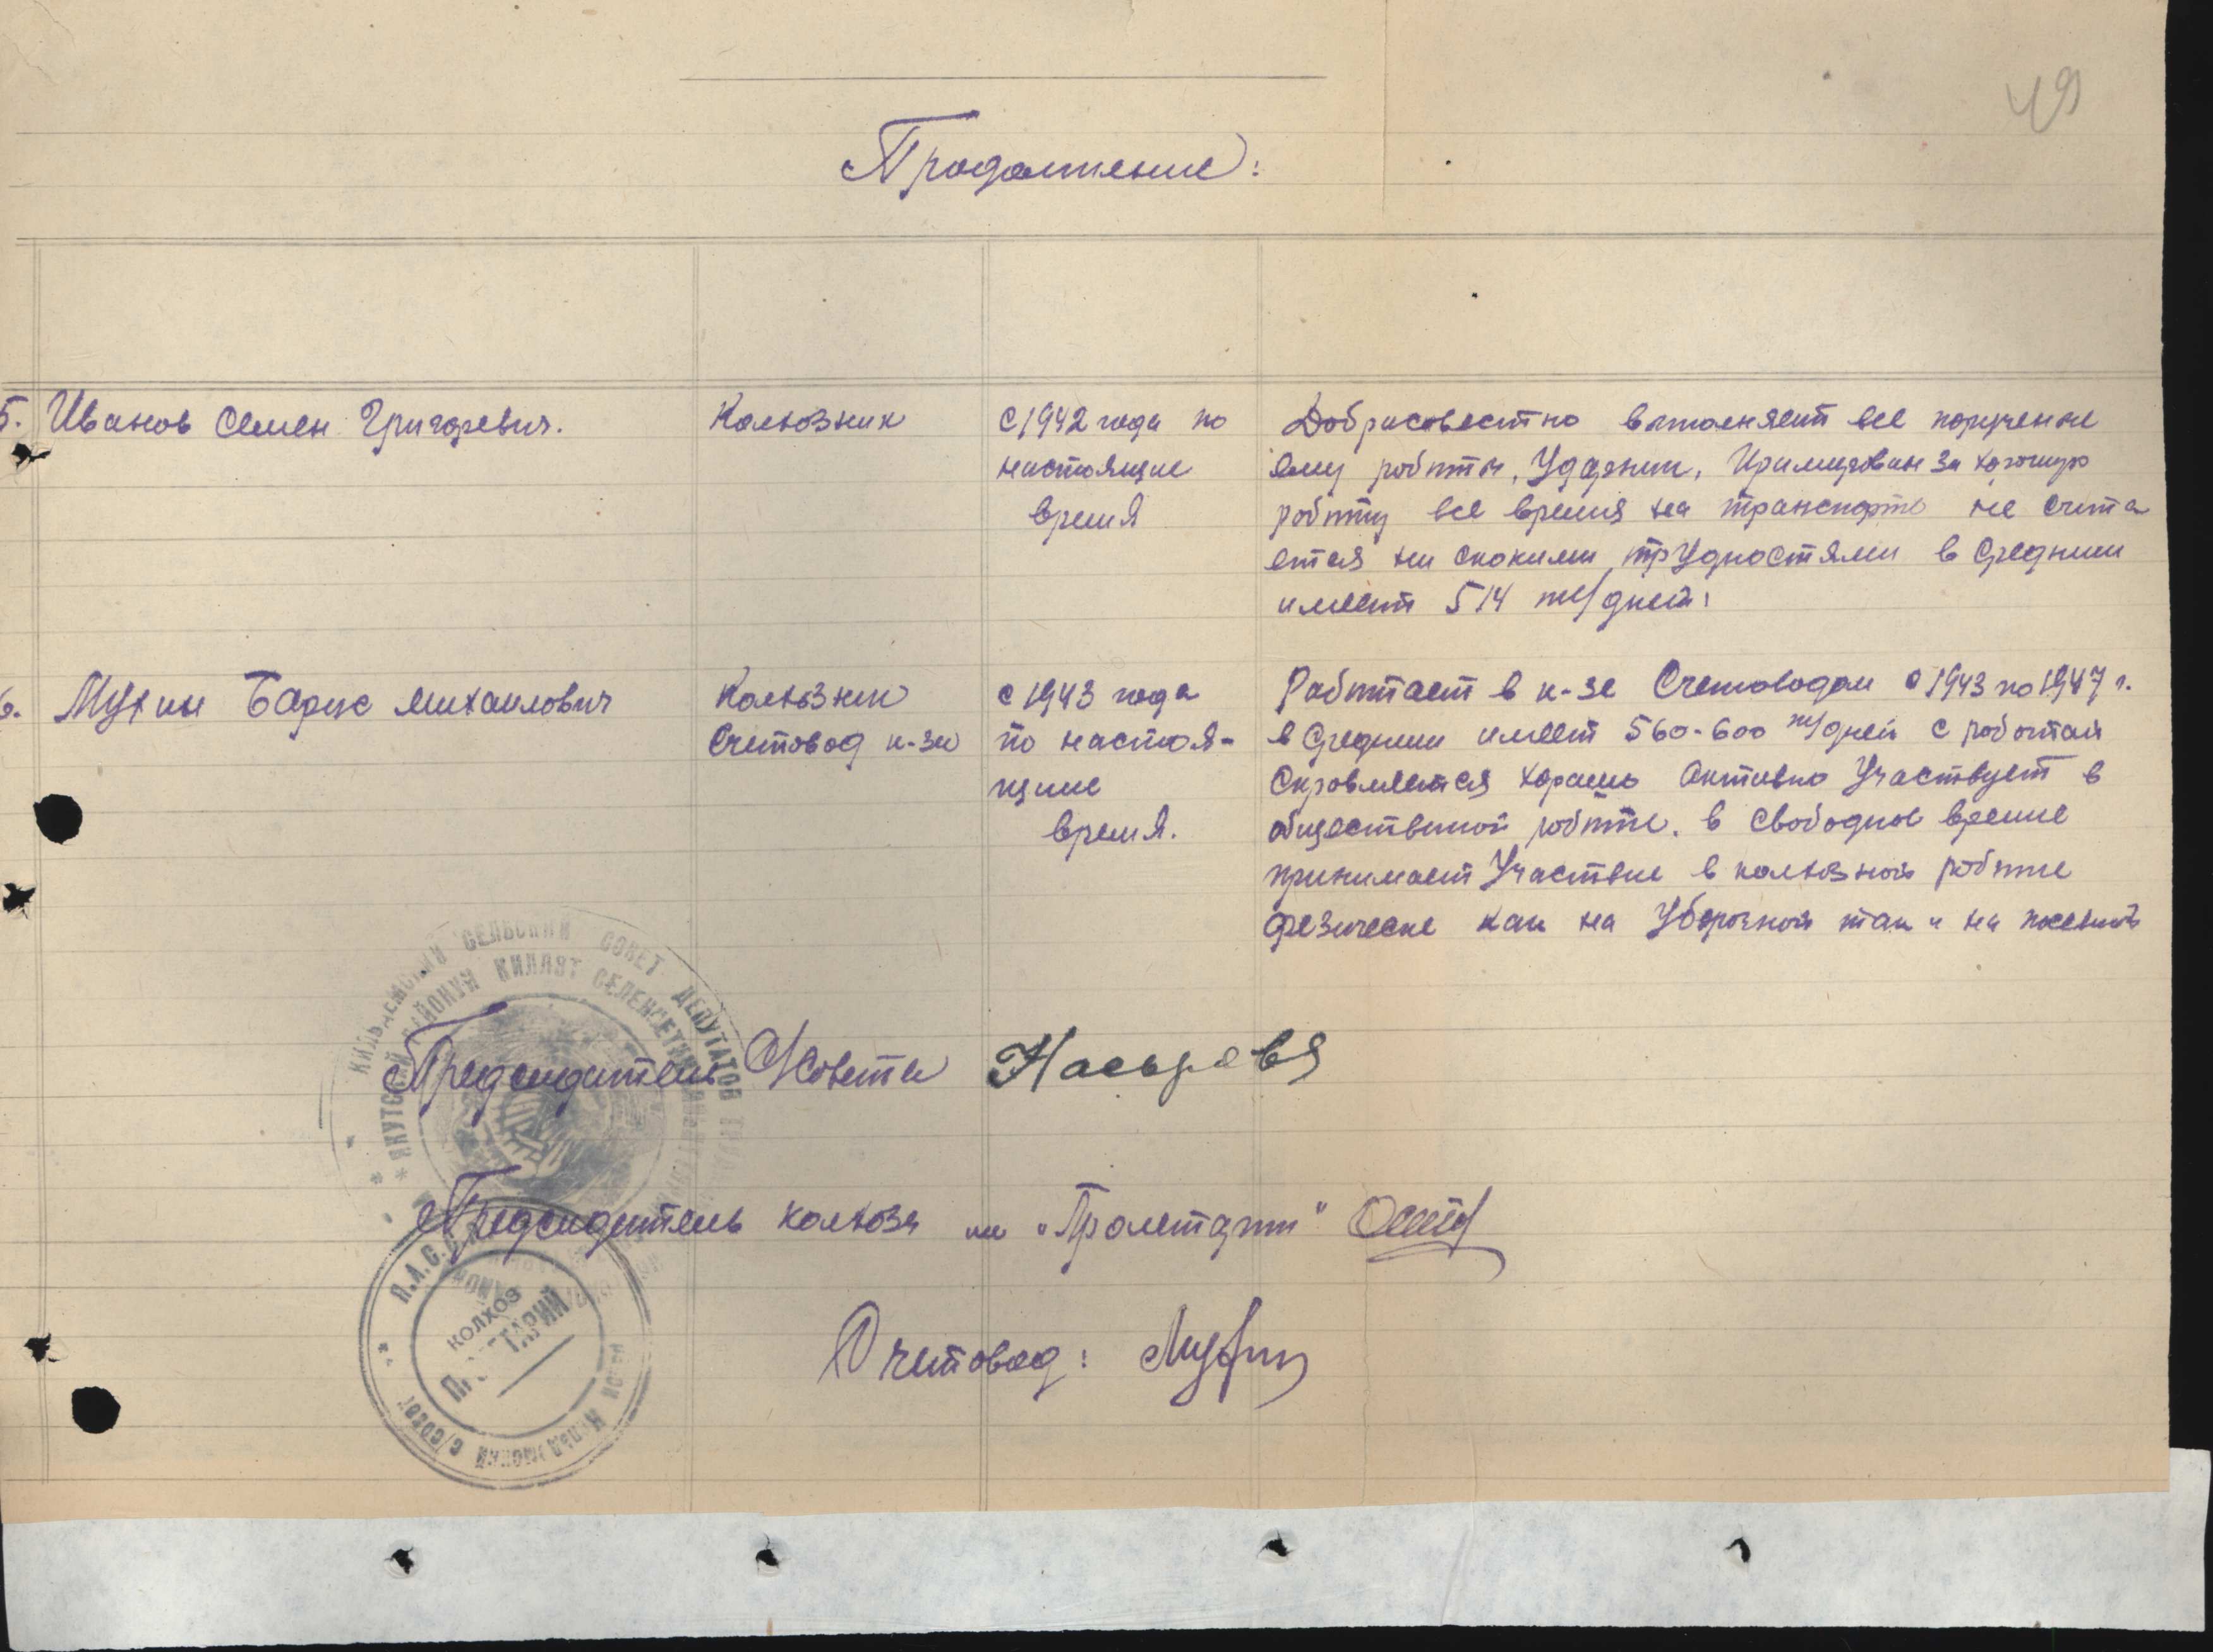 49
Продолжение:
5. Иванов Семен Григоревич.
Колхозник
С 1942 года по
настоящие
время
Добрасовестно выполняет все порученые
ему роботы, Ударник, Примирован за хорошую
роботу все время на транспорте не счита
ется ни скокими трудностями в Среднем
имеет 514 тр/дней.
6. Мухин Барис Михаилович
Колхозник
Счетовод к-за
с 1943 года
по настоя-
щие
время.
Работает в к-зе Счетоводом с 1943 по 1947 г.
в Среднем имеет 560-600 тр/дней с роботай
Справляется хорашо Активно Участвует в
общественой роботе. в Свободное время
принимает Участвие в колхозной роботе
фезическе как на Уборочной так и на посевной
КИЛЬДЕМСКИЙ СЕЛЬСКИЙ СОВЕТ ДЕПУТАТОВ
Председатель Совета
Председатель колхоза им "Пролетарии"
КОЛХОЗ
Счетовод: Мухин